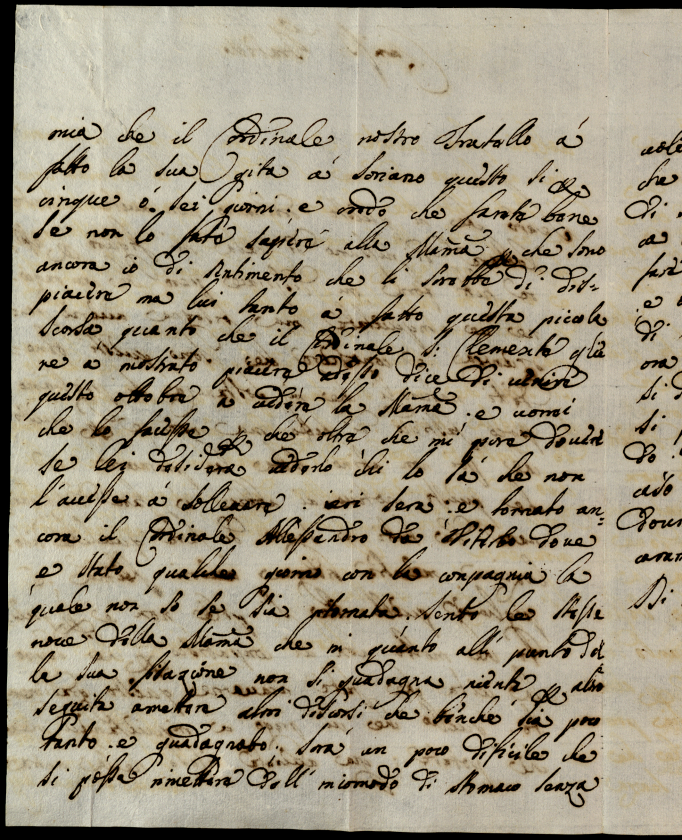 mia che il Cardinale nostro Fratello á
fatto la sua gita á Soriano questo si
cinque ó sei giorni e credo che farà bene
se non lo farà sapere alla Mamà che sono
ancora io di sentimento che li sarebbe di dis=
piacere ma lui tanto á fatto questa piccola
scorsa quanto che il Cardinale S: Clemente glie
ne á mostrato piacere adesso dice di venire
questo ottobre a vedere la Mamà e vorrei
che lo facesse che oltre che mi pare dovere
se lei desidera vederlo chi lo sá che non
l'avesse á sollevare ieri sera e tornato an=
cora il Cardinale Allessandro da Viterbo dove
e stato qualche giorno con la conpagnia la
quale non so se sia tornata sento le stesse
nove della Mamà che in quanto all' punto del
la sua situazione non si guadagna niente altro
seguita á mettere altri discorsi che benche sia poco
tanto e guadagnato. Sará un poco dificile che
si posse rimettere dell' incomodo di stomaco senza
che
Di
si
si
do
Di